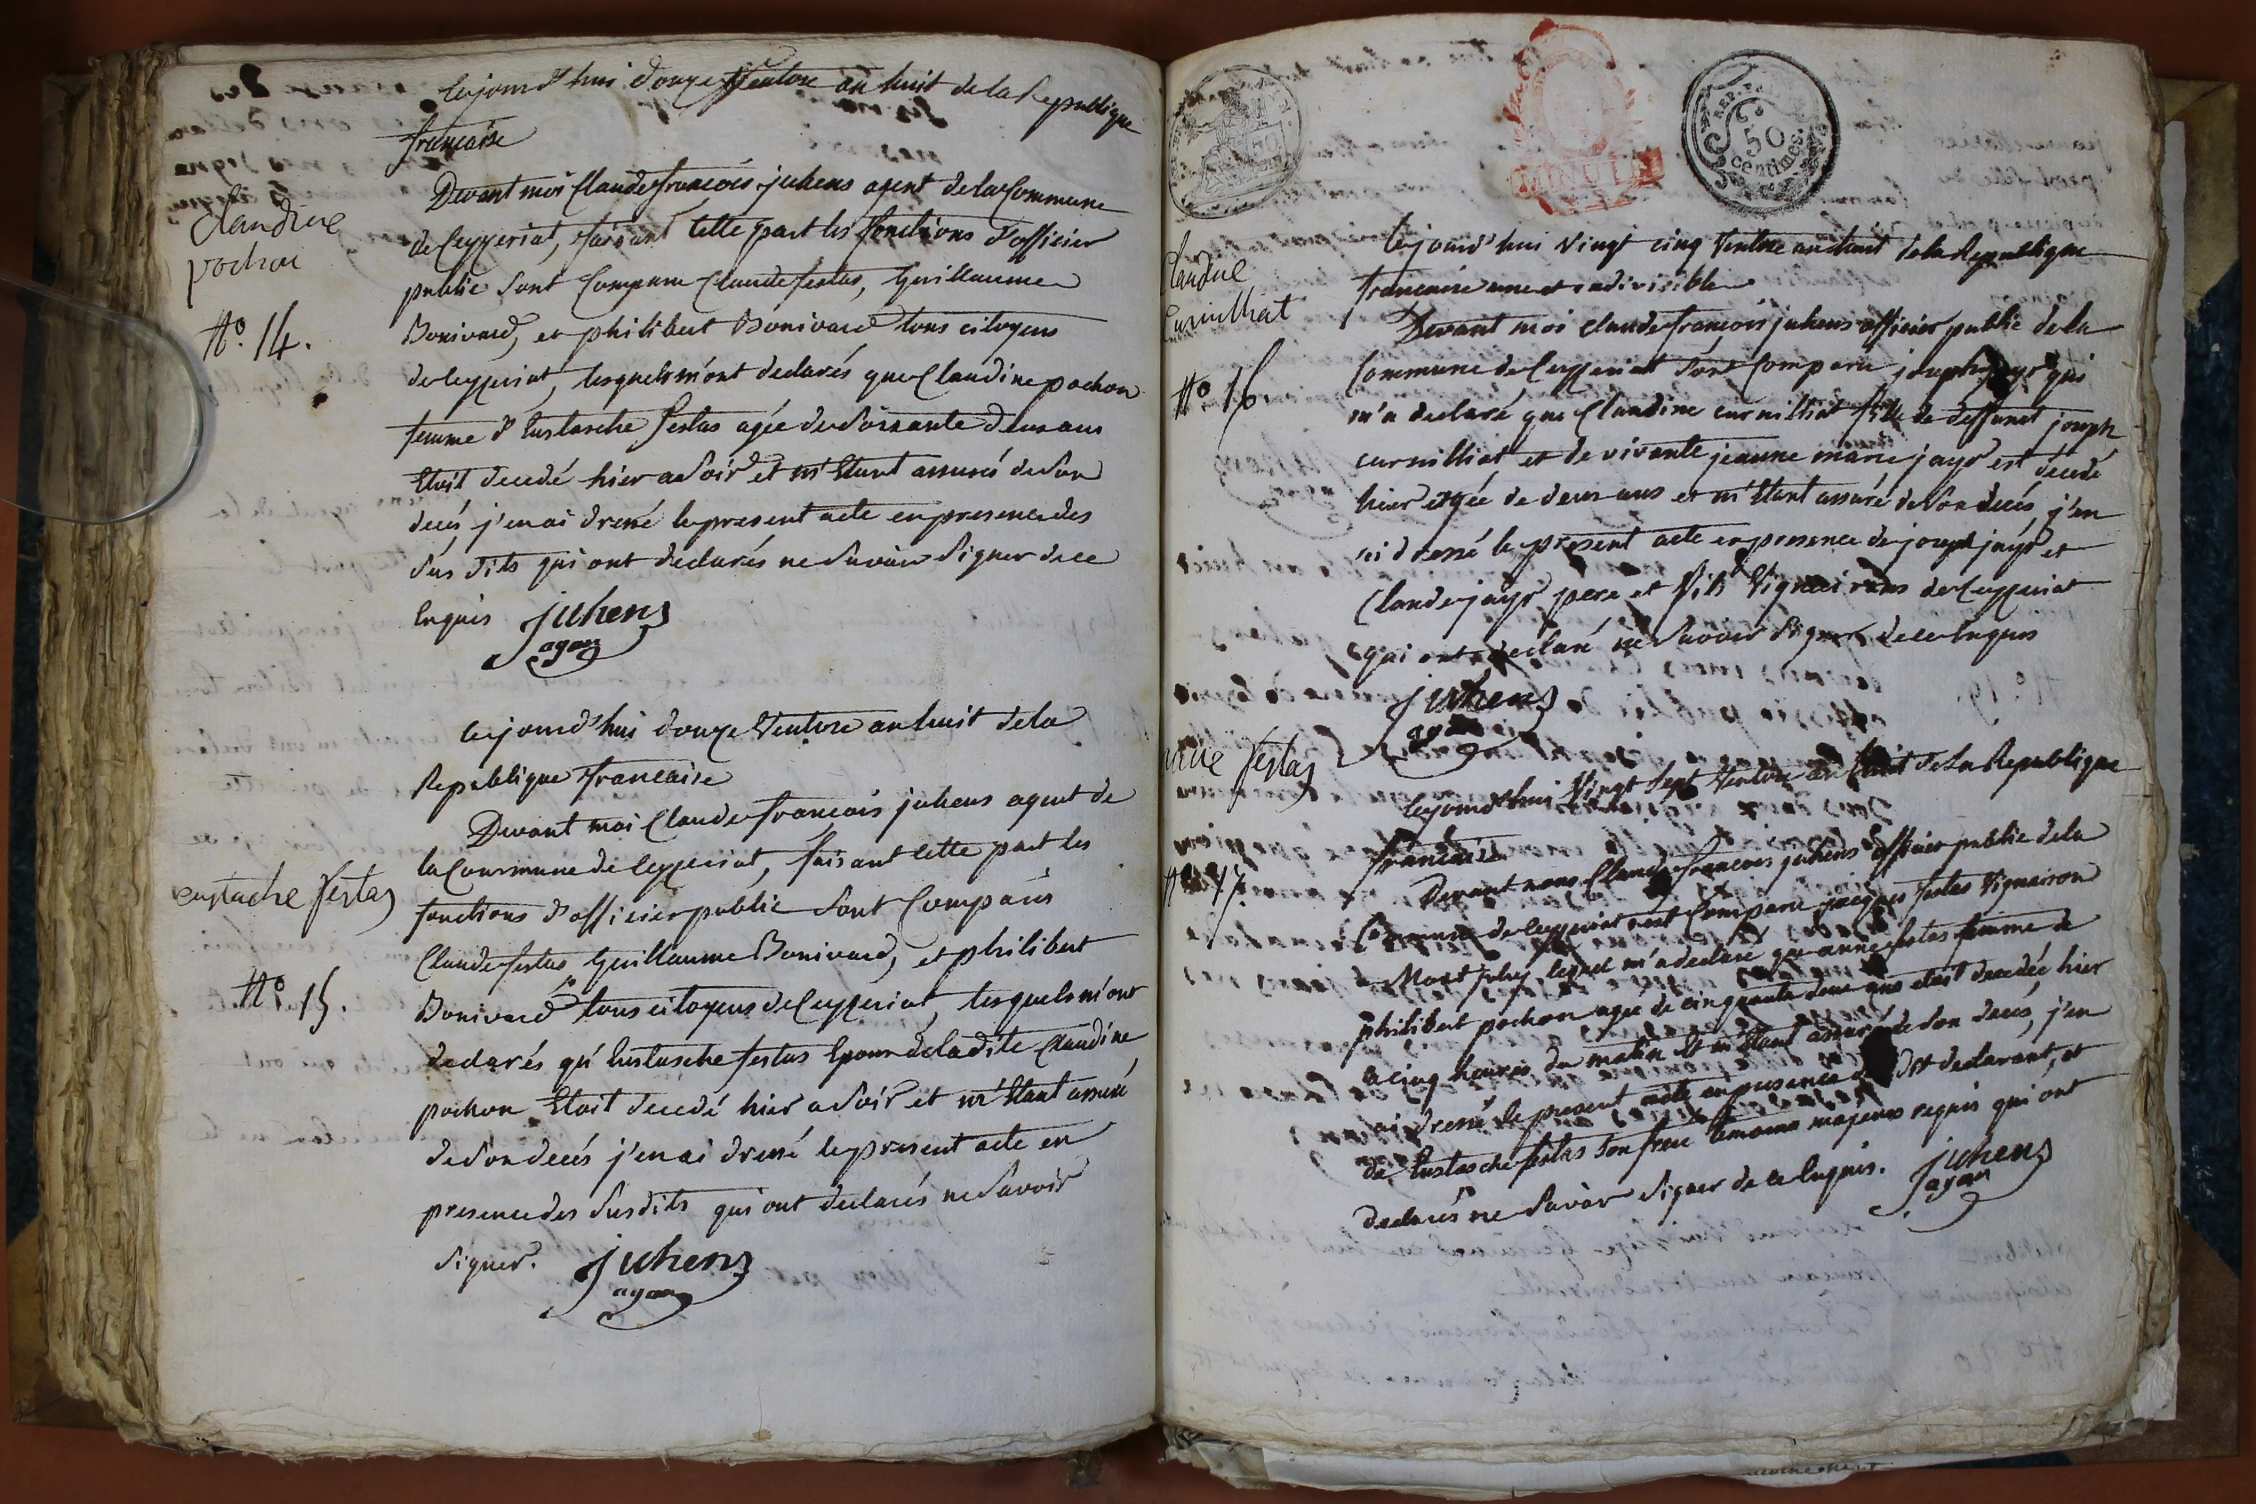 Cejourd'hui douze Ventose an huit de la Republique
francaise
Claudine
pochon
N.o 14.
Devant moi Claude francois juhens agent de la Commune
de Ceyzeriat, faisant cette part les fonctions d'officier
public sont Comparu Claude festas, Guillaume
Bonivard, et philibert Bonivard tous citoyens
de ceyzeriat, lesquels m'ont declarés que Claudine pochon
femme d'Eustasche festas agée de soixante deux ans
Etoit decedé hier au soir et m'Etant assuré de son
decés j'en ai dressé le present acte en presence des
sus dits qui ont declarés ne savoir signer de ce
Enquis juhens
agent
Cejourd'hui douze Ventose an huit de la
Republique francaise
Devant moi Claude francois juhens agent de
la Commune de Ceyzeriat, faisant cette part les
eustache festas
fonctions d'officier public sont Comparus
Claude festas Guillaume Bonivard, et philibert
N.o 15.
Bonivard tous citoyens de Ceyzeriat, lesquels m'ont
declarés qu'Eustasche festas Epoux de ladite Claudine
pochon Etoit decedé hier au soir et m'Etant assuré
de son decés j'en ai dressé le present acte en
presence des susdits qui ont declarés ne savoir
signer. juhens
agent
REP. FRA
50
centimes.
Claudine
Curnilliat
N.o 16.
Cejourd'hui Vingt cinq Ventose an huit de la Republique
francaise une et indivisible
Devant moi Claude francois juhens officier public de la
Commune de Ceyzeriat sont Comparu joseph jayr qui
m'a declaré que Claudine curnilliat fille de deffunct joseph
curnilliat et de vivante jeanne marie jayr est décedé
hier agée de deux ans et m'Etant assuré de son decés, j'en
ai dressé le present acte en presence de joseph jayr et
Claude jayr pere et fils Vignerons de Ceyzeriat
qui ont declaré ne savoir signer de ce Enquis
juhens
agent
anne festas
N.o 17.
Cejourd'hui Vingt sept Ventose an huit de la Republique
francaise
Devant nous Claude francois juhens officier public de la
Commune de Ceyzeriat est Comparu jacques festas Vigneron
a Mont july lequel m'a declaré que anne festas femme de
philibert pochon agée de cinquante deux ans etoit decedée hier
a cinq heures du matin et m'Etant assuré de son decés, j'en
ai dressé le present acte en presence du dit declarant, et
de Eustasche festas son frere temoins majeurs requis qui ont
declarés ne savoir signer de ce Enquis. juhens
agent